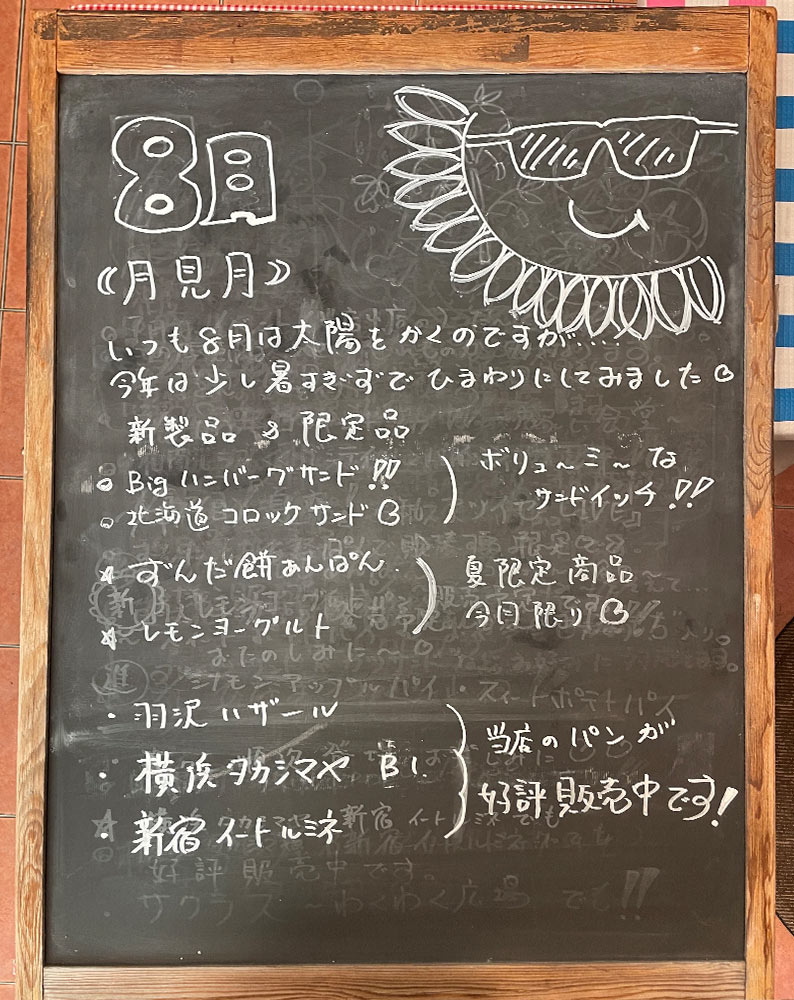 8月
《月見月》
いつも8月は太陽をかくのですが....
今年は少し暑すぎずでひまわりにしてみました
新製品&限定品
○ Big ハンバーグサンド!!
○ 北海道コロッケサンド
ボリュ〜ミ〜な
サンドイッチ!!
☆ ずんだ餅あんぱん.
☆ レモンヨーグルト
夏限定商品
今月限り
・羽沢ハザール
・横浜タカシマヤ B1.
・新宿イートルミネ
当店のパンが
好評販売中です!
好評販売中です。
サクラス〜わくわく広場 でも!!